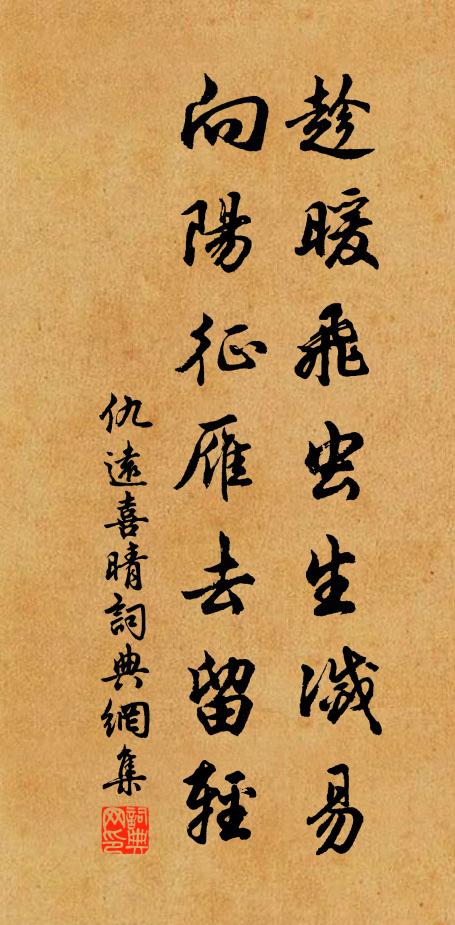 趁暖飛虫生滅易
向陽征雁去留輕
仇遠喜晴詞典網集
詞典网印